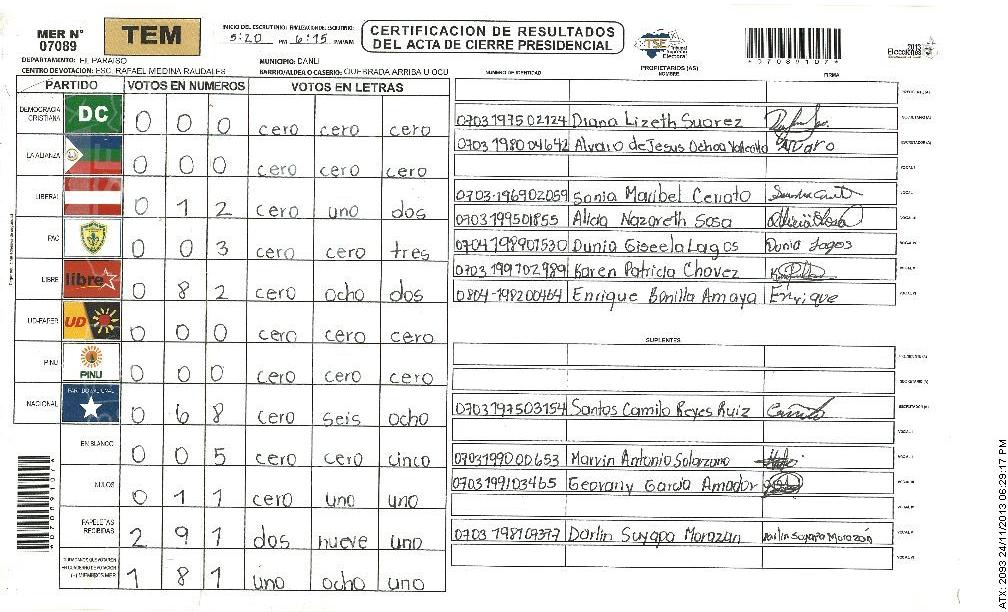 MER N° 07089
TEM
INICIO DEL ESCRUTINIO: FINALIZACION DEL ESCRUTINIO:
5:20 PM 6:15 PM/AM
CERTIFICACION DE RESULTADOS
DEL ACTA DE CIERRE PRESIDENCIAL
TSE Tribunal Supremo Electoral
070891074
2013 Elecciones
DEPARTAMENTO: EL PARAISO
MUNICIPIO: DANLI
CENTRO DE VOTACION: ESC. RAFAEL MEDINA RAUDALES
BARRIO/ALDEA O CASERIO: QUEBRADA ARRIBA U OCU
NUMERO DE IDENTIDAD
PROPIETARIOS (AS)
NOMBRE
FIRMA
PARTIDO VOTOS EN NUMEROS VOTOS EN LETRAS
DEMOCRACIA CRISTIANA DC 0 0 0 cero cero cero
LA ALIANZA 0 0 0 cero cero cero
LIBERAL 0 1 2 cero uno dos
PAC 0 0 3 cero cero tres
LIBRE libre 0 8 2 cero ocho dos
UD-FAPER UD 0 0 0 cero cero cero
PINU PINU 0 0 0 cero cero cero
NACIONAL PARTIDO NACIONAL 0 6 8 cero seis ocho
EN BLANCO 0 0 5 cero cero cinco
NULOS 0 1 1 cero uno uno
PAPELETAS RECIBIDAS 2 9 1 dos nueve uno
CIUDADANOS QUE VOTARON EN CUADERNO DE VOTACION (+) MIEMBROS MER 1 8 1 uno ocho uno
0703197502124 Diana Lizeth Suarez
0703 198004642 Alvaro de Jesus Ochoa Alvaro
0703-196902059 Sonia Maribel Cerrato
0703199501855 Alicia Nazareth Sosa Alicia Sosa
0704198907530 Dunia Giseela Lagos Dunia Lagos
0703 199702989 Karen Patricia Chavez
0804-198200464 Enrique Bonilla Amaya Enrique
SUPLENTES
0703197503154 Santos Camilo Reyes Ruiz Camilo
0703199000653 Marvin Antonio Solorzano
0703199103465 Geovany Garcia Amador
0703 198109377 Darlin Suyapa Morazan Darlin Suyapa Morazán
A070891074
ATX: 2093 24/11/2013 06:29:17 PM